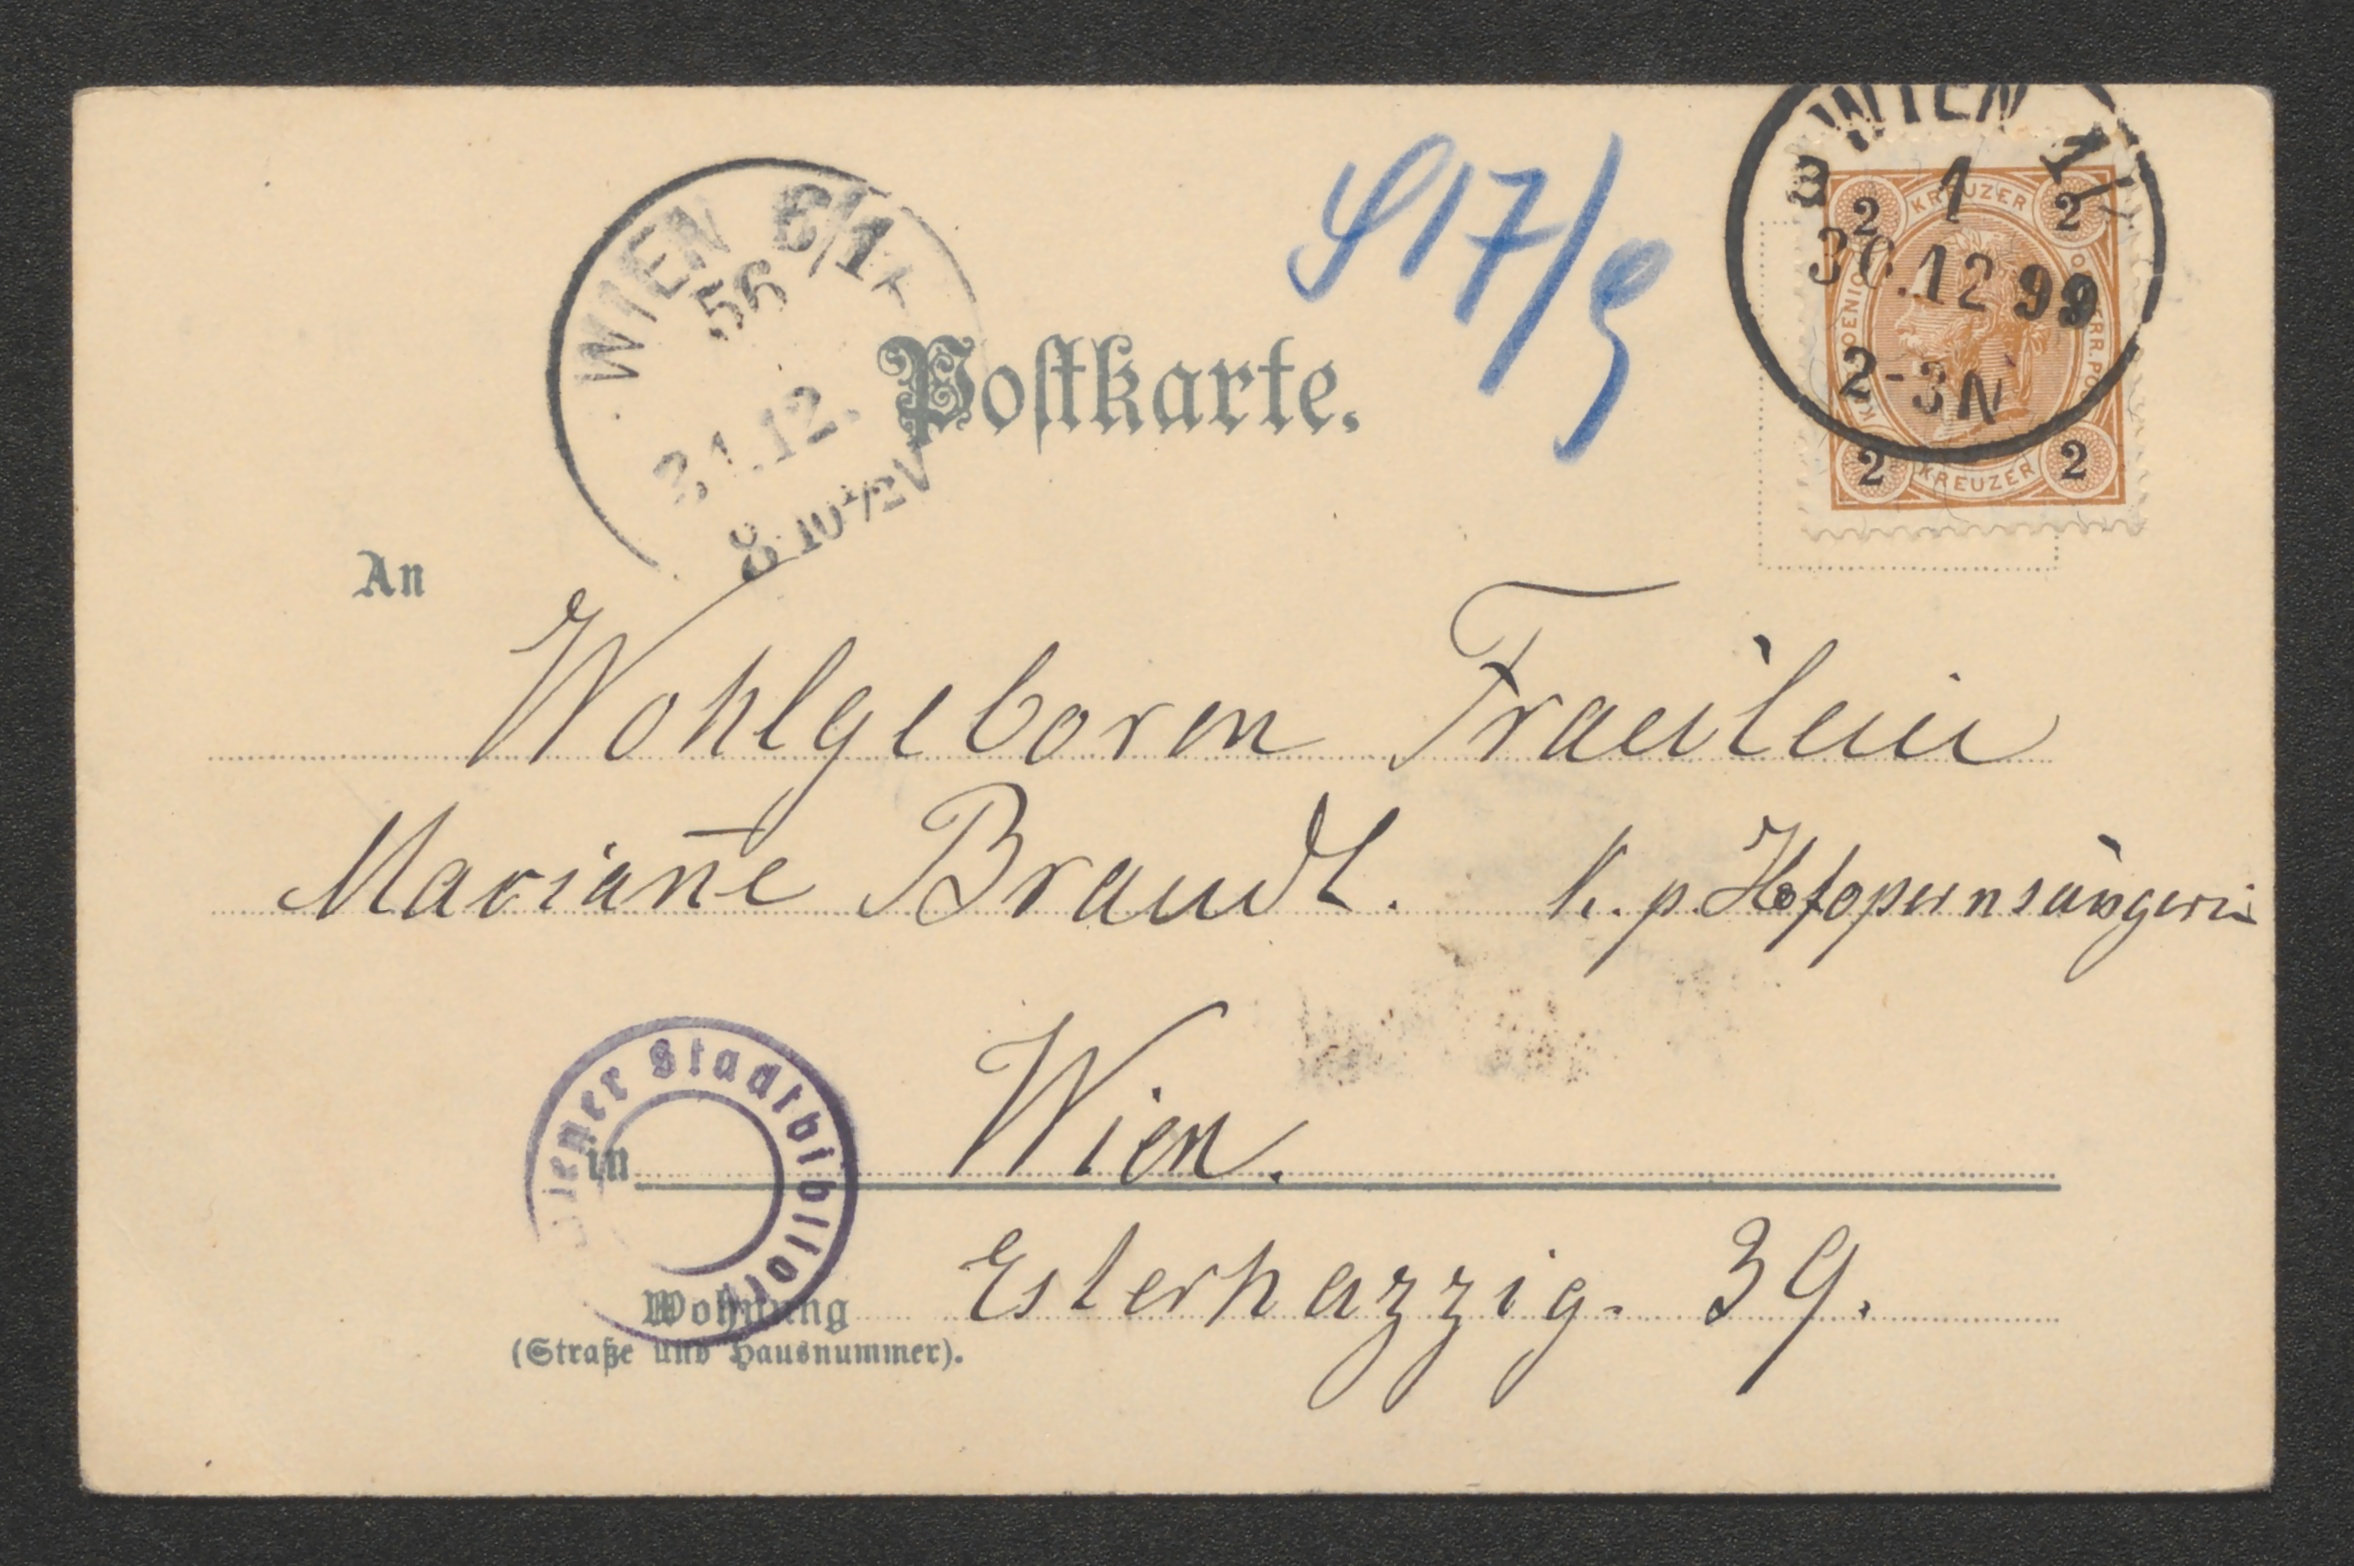 WIEN 6/1
56
31.12.
8.10½V
Postkarte.
WIEN
1
30.12 99
2-3N
2 KREUZER 2
2 KREUZER 2
An
Wohlgeboren Fraeülein
Mariane̅ Brandt. k. p. Hofopernsängerin
Wiener Stadtbibliothek
in Wien.
Wohnung Esterhazzig. 39.
(Straße und Hausnummer).